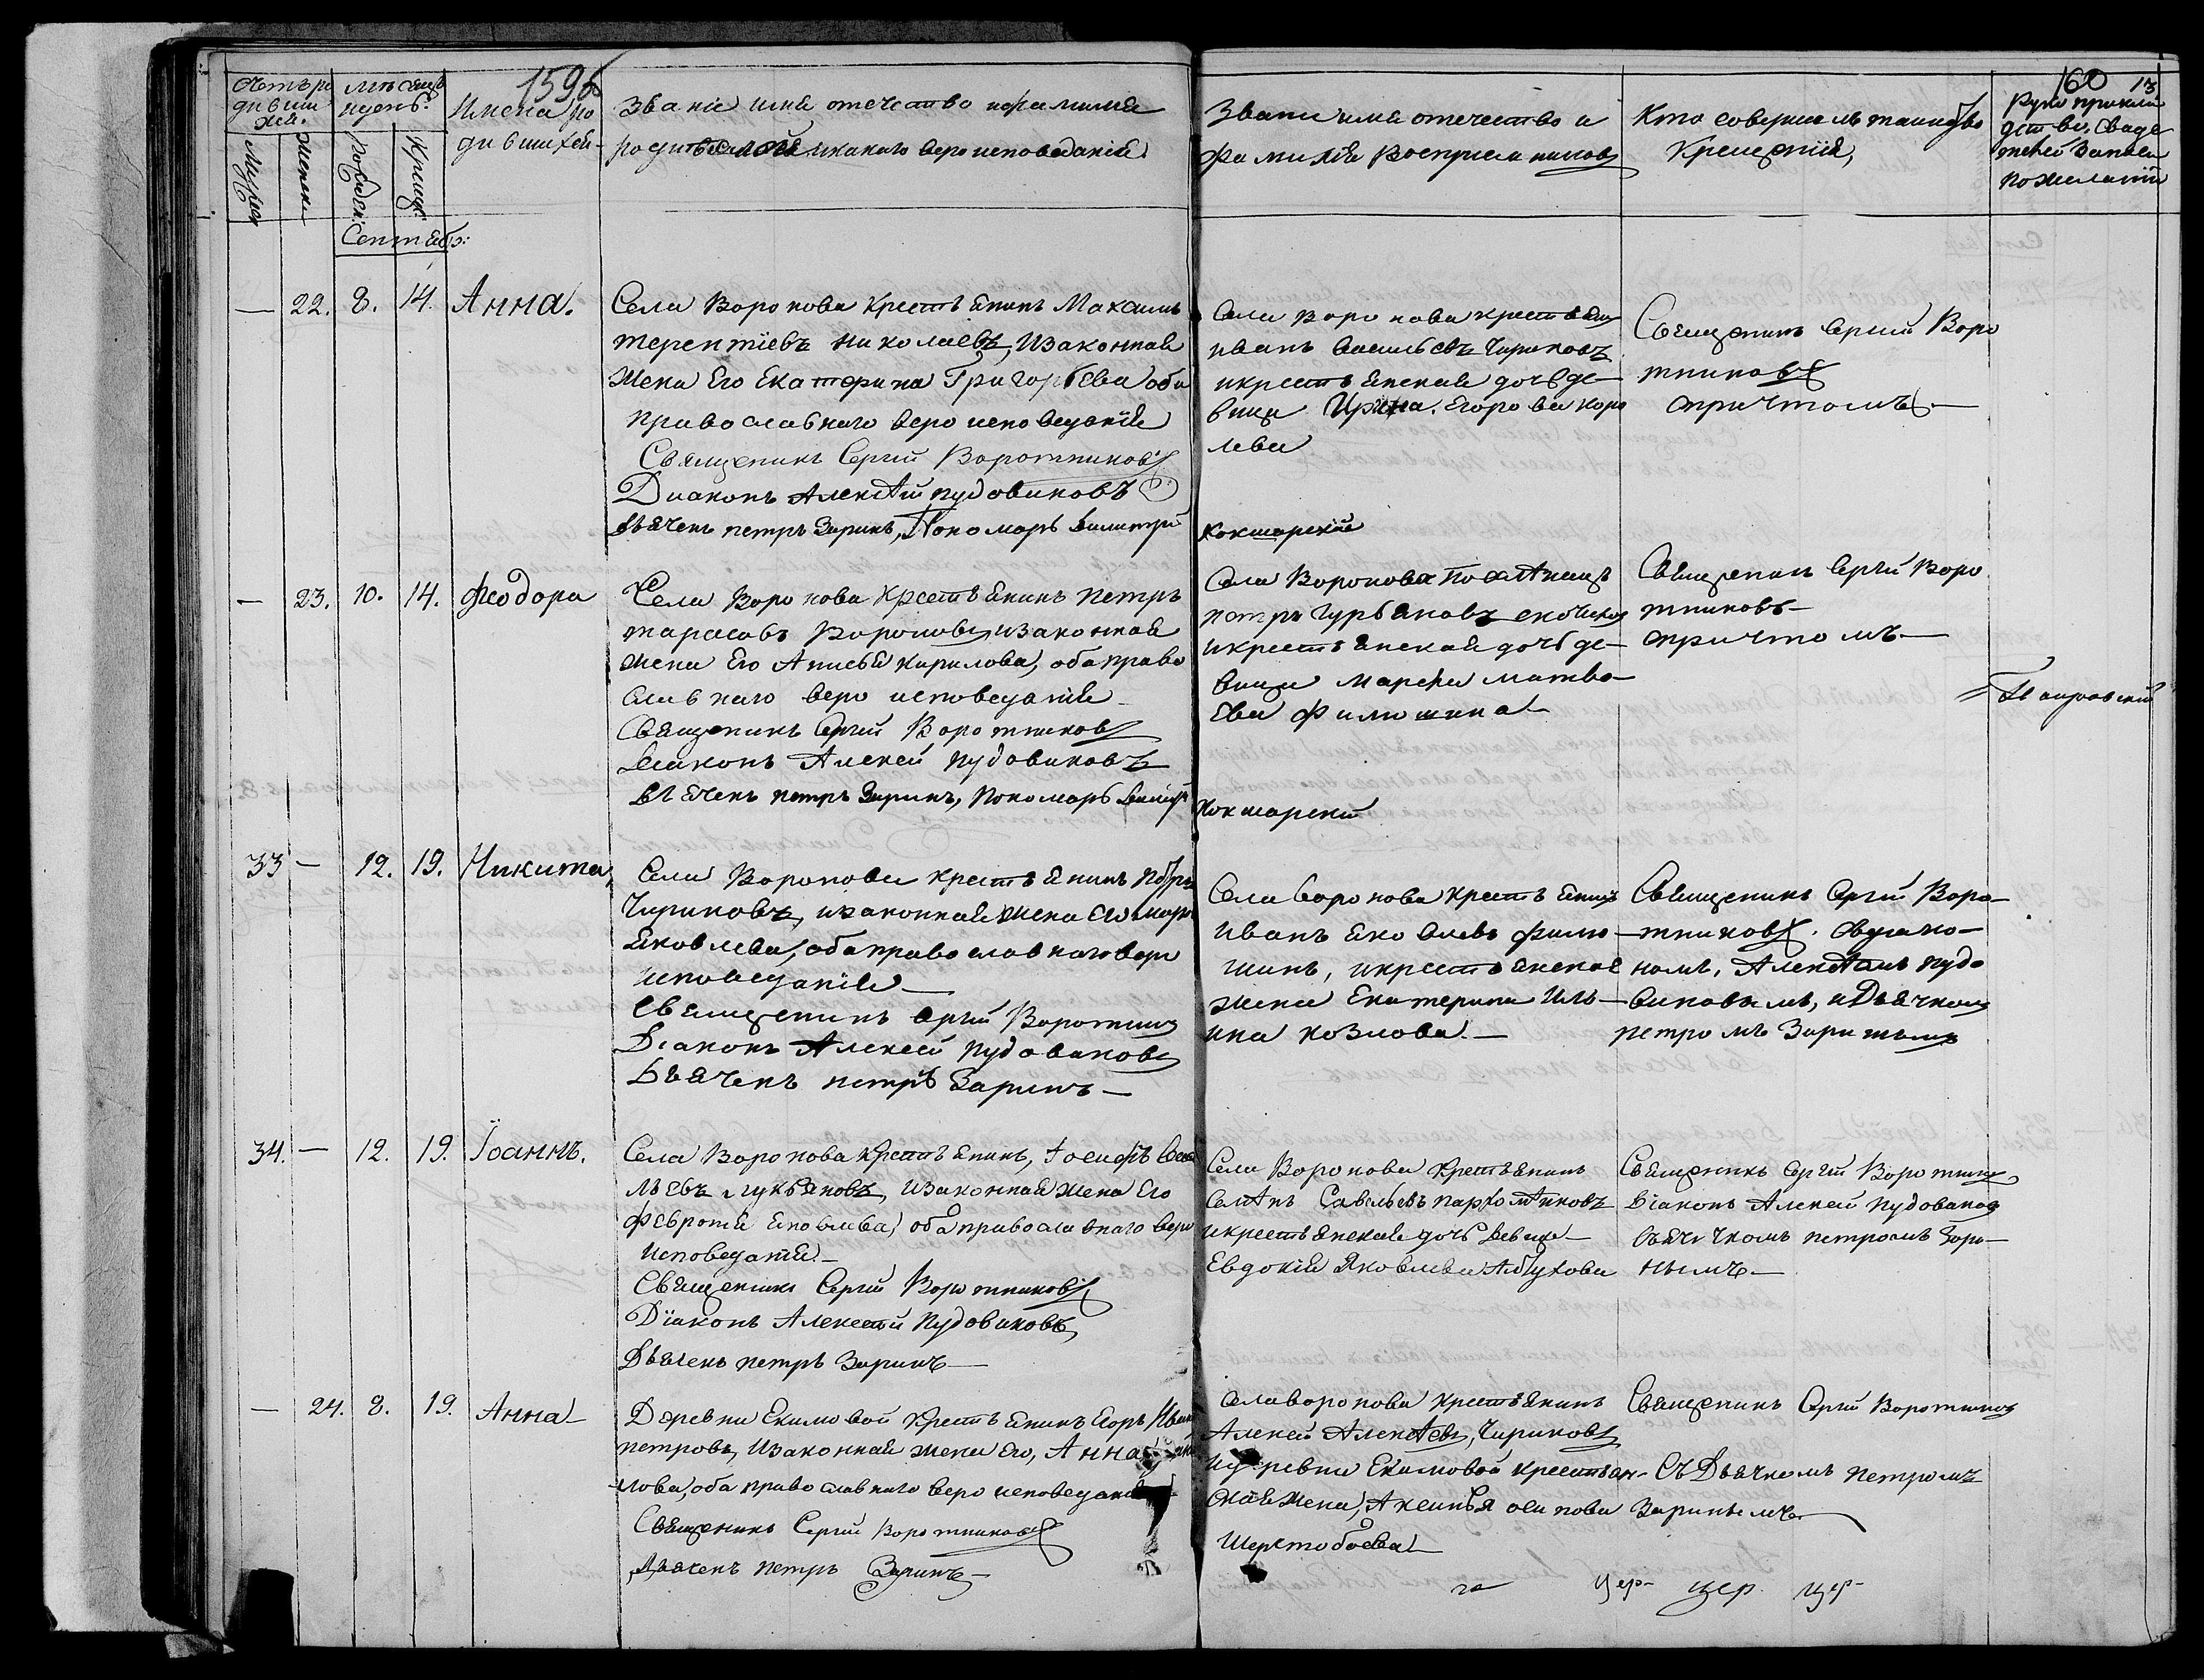 159об
160 13
Счетъ ро
дивши
хся.
Мужеск
Женск
месяцъ
и день.
Рожден:
Крещен:
Имена ро
дившихся
Званіе имя отечество и фамилия
родителей и какого вероисповеданія
Звание имя отечество и
фамилія Восприемниковъ
Кто совершалъ таинство
Крещенія,
Руко приклад
ство свиде
телей записи
по желанію
Сентябр:
— 22. 8. 14. Анна.
Села Воронова Крестьянинъ Максимъ
терентіевъ николаевъ, Изаконная
жена Его Екатерина Григорьева оба
православнаго вероисповеданія
Священикъ Сергій Воротниковъ
Диаконъ Алексѣй пудовиковъ
Дьячекъ петръ Заринъ, Пономарь Димитрій
Кокшарскій
Села Воронова крестьянинъ
иванъ Васильевъ Чириковъ
икрестьянская дочь де-
вица Ирина Егорова Коро
лева
Священикъ Сергій Воро
тниковъ
спричтомъ
— 23. 10. 14. Феодора
Села Воронова Крестьянинъ Петръ
тарасовъ Вороновъ изаконная
жена Его Анисья Кирилова, оба право
славнаго вероисповеданія
Священикъ Сергій Воротниковъ
Диаконъ Алексей пудовиковъ
Дьячекъ петръ Заринъ, пономарь Димитр
Кокшарскій
Села Воронова
петръ Гурьяновъ
икрестьянская дочь де-
вица Марфа матве-
Ева Филюшина
Священикъ Сергій Воро
тниковъ
спричтомъ
33 — 12. 19. Никита,
Села Воронова крестьянинъ петръ
Чириковъ, изаконная жена Его
Яковлева, оба православнаго веро
исповеданія
Священикъ Сергій Воротник
Діаконъ Алексей пудовиковъ
Дьячекъ петръ Заринъ
Села Воронова крестьянинъ
иванъ Яковлевъ Филю-
шинъ, икрестьянская
жена Екатерина Иль-
ина Козлова.
Священикъ Сергій Воро-
тниковъ. Сдиако-
номъ, Алексѣемъ пудо
виковымъ, и Дьячкомъ
петромъ Заринымъ
34. — 12. 19. Іоаннъ.
Села Воронова Крестьянинъ, Іосифъ
льевъ Лукьяновъ, изаконная жена Его
Феврония Яковлева, оба православнаго веро
исповедания.
Священикъ Сергій Воротниковъ
Діаконъ Алексей Пудовиковъ,
Дьячекъ петръ Заринъ
Села Воронова Крестьянинъ
Савельевъ
икрестьянская дочь Девица
Евдокія Яковлева Абухова
Священикъ Сергій Воротник
Діаконъ Алексей пудовиковъ
Дьячкомъ петромъ Зари-
нымъ
— 24. 8. 19. Анна
Деревни Екимовой Крестьянинъ Егоръ Иван
петровъ, Изаконная жена Его, Анна
лова, оба православнаго вероисповедания
Священикъ Сергій Воротниковъ
Дьячекъ петръ Заринъ
Села воронова крестьянинъ
Алексей Алексѣевъ, Чириковъ
идеревни Екимовой крестьян-
ская жена, Аксинья осипова
Шерстобоева
Священикъ Сергій Воротник
Съ Дьячкомъ петромъ
Заринымъ
цер цер цер